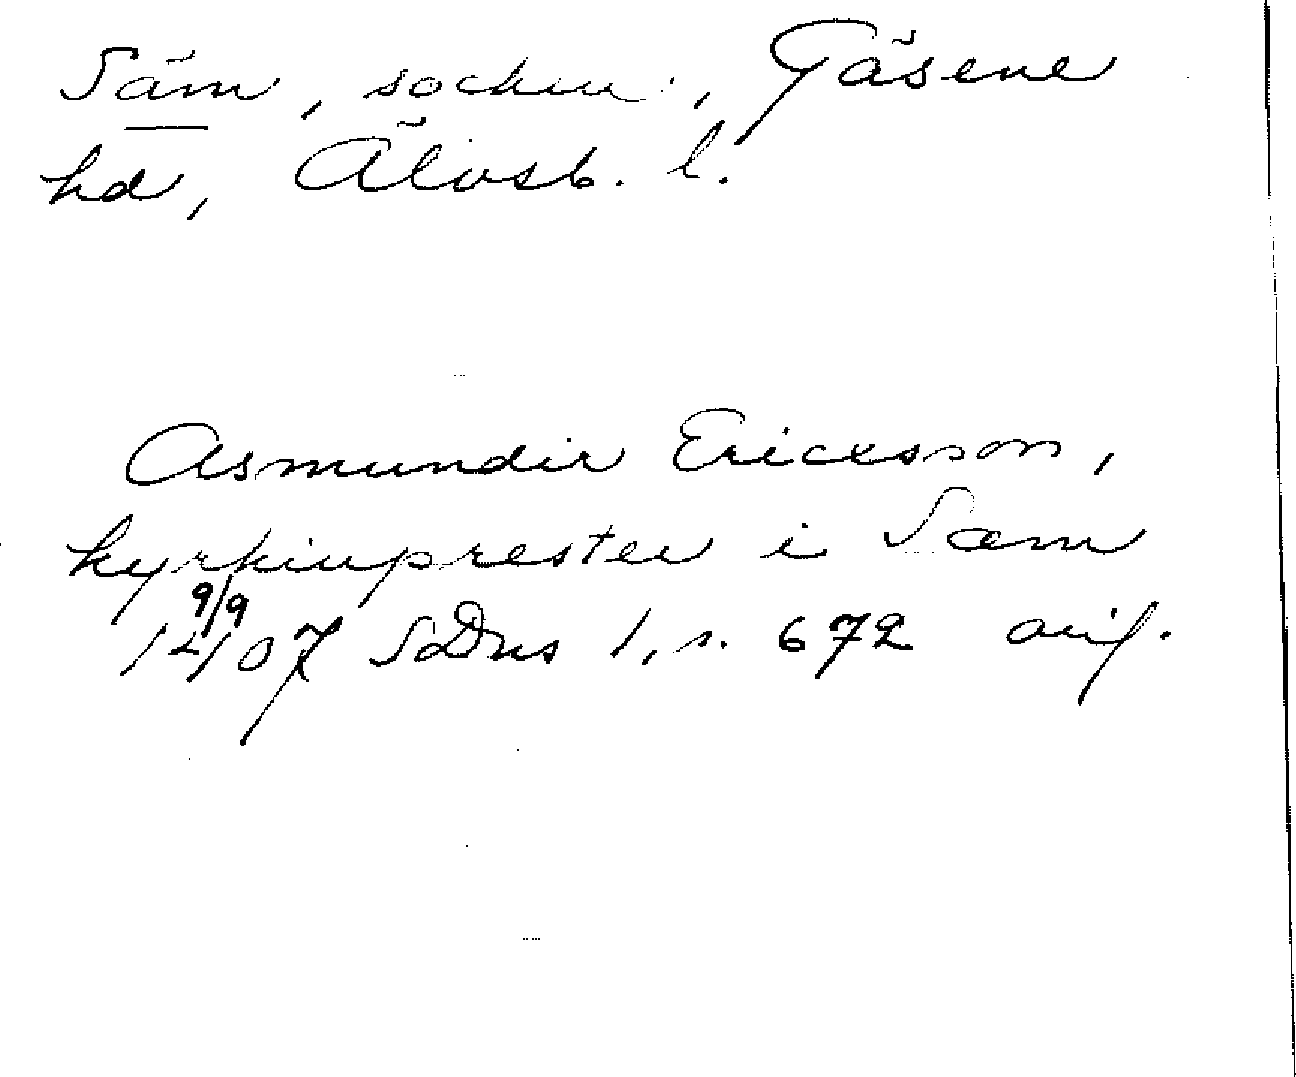 Säm, socken, Gäsene
hd, Älvsb. l.
Asmundir Ericsson,
kyrkiuprester i Sæm
9/9
1407 SDns 1, s. 672 avs.